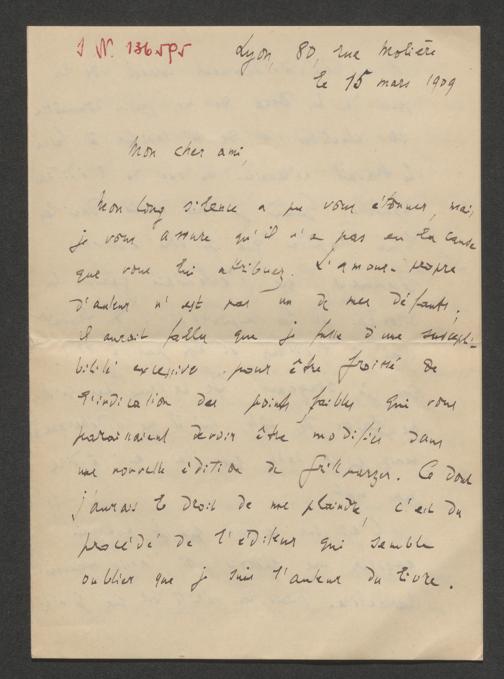 I N. 136595
Lyon, 80, rue Molière
le 15 mars 1909
Mon cher ami,
Mon long silence a pu vous étonner, mais
je vous assure qu'il n'a pas eu la cause
que vous lui attribuez. L'amour-propre
d'auteur n'est pas un de mes défauts;
il aurait fallu que je fusse d'une suscepti-
bilité excessive pour être froissé de
l'indication des points faibles qui vous
paraissaient devoir être modifiés dans
une nouvelle édition de Grillparzer. Ce dont
j'aurais le droit de me plaindre, c'est du
procédé de l'éditeur qui semble
oublier que je suis l'auteur du livre.